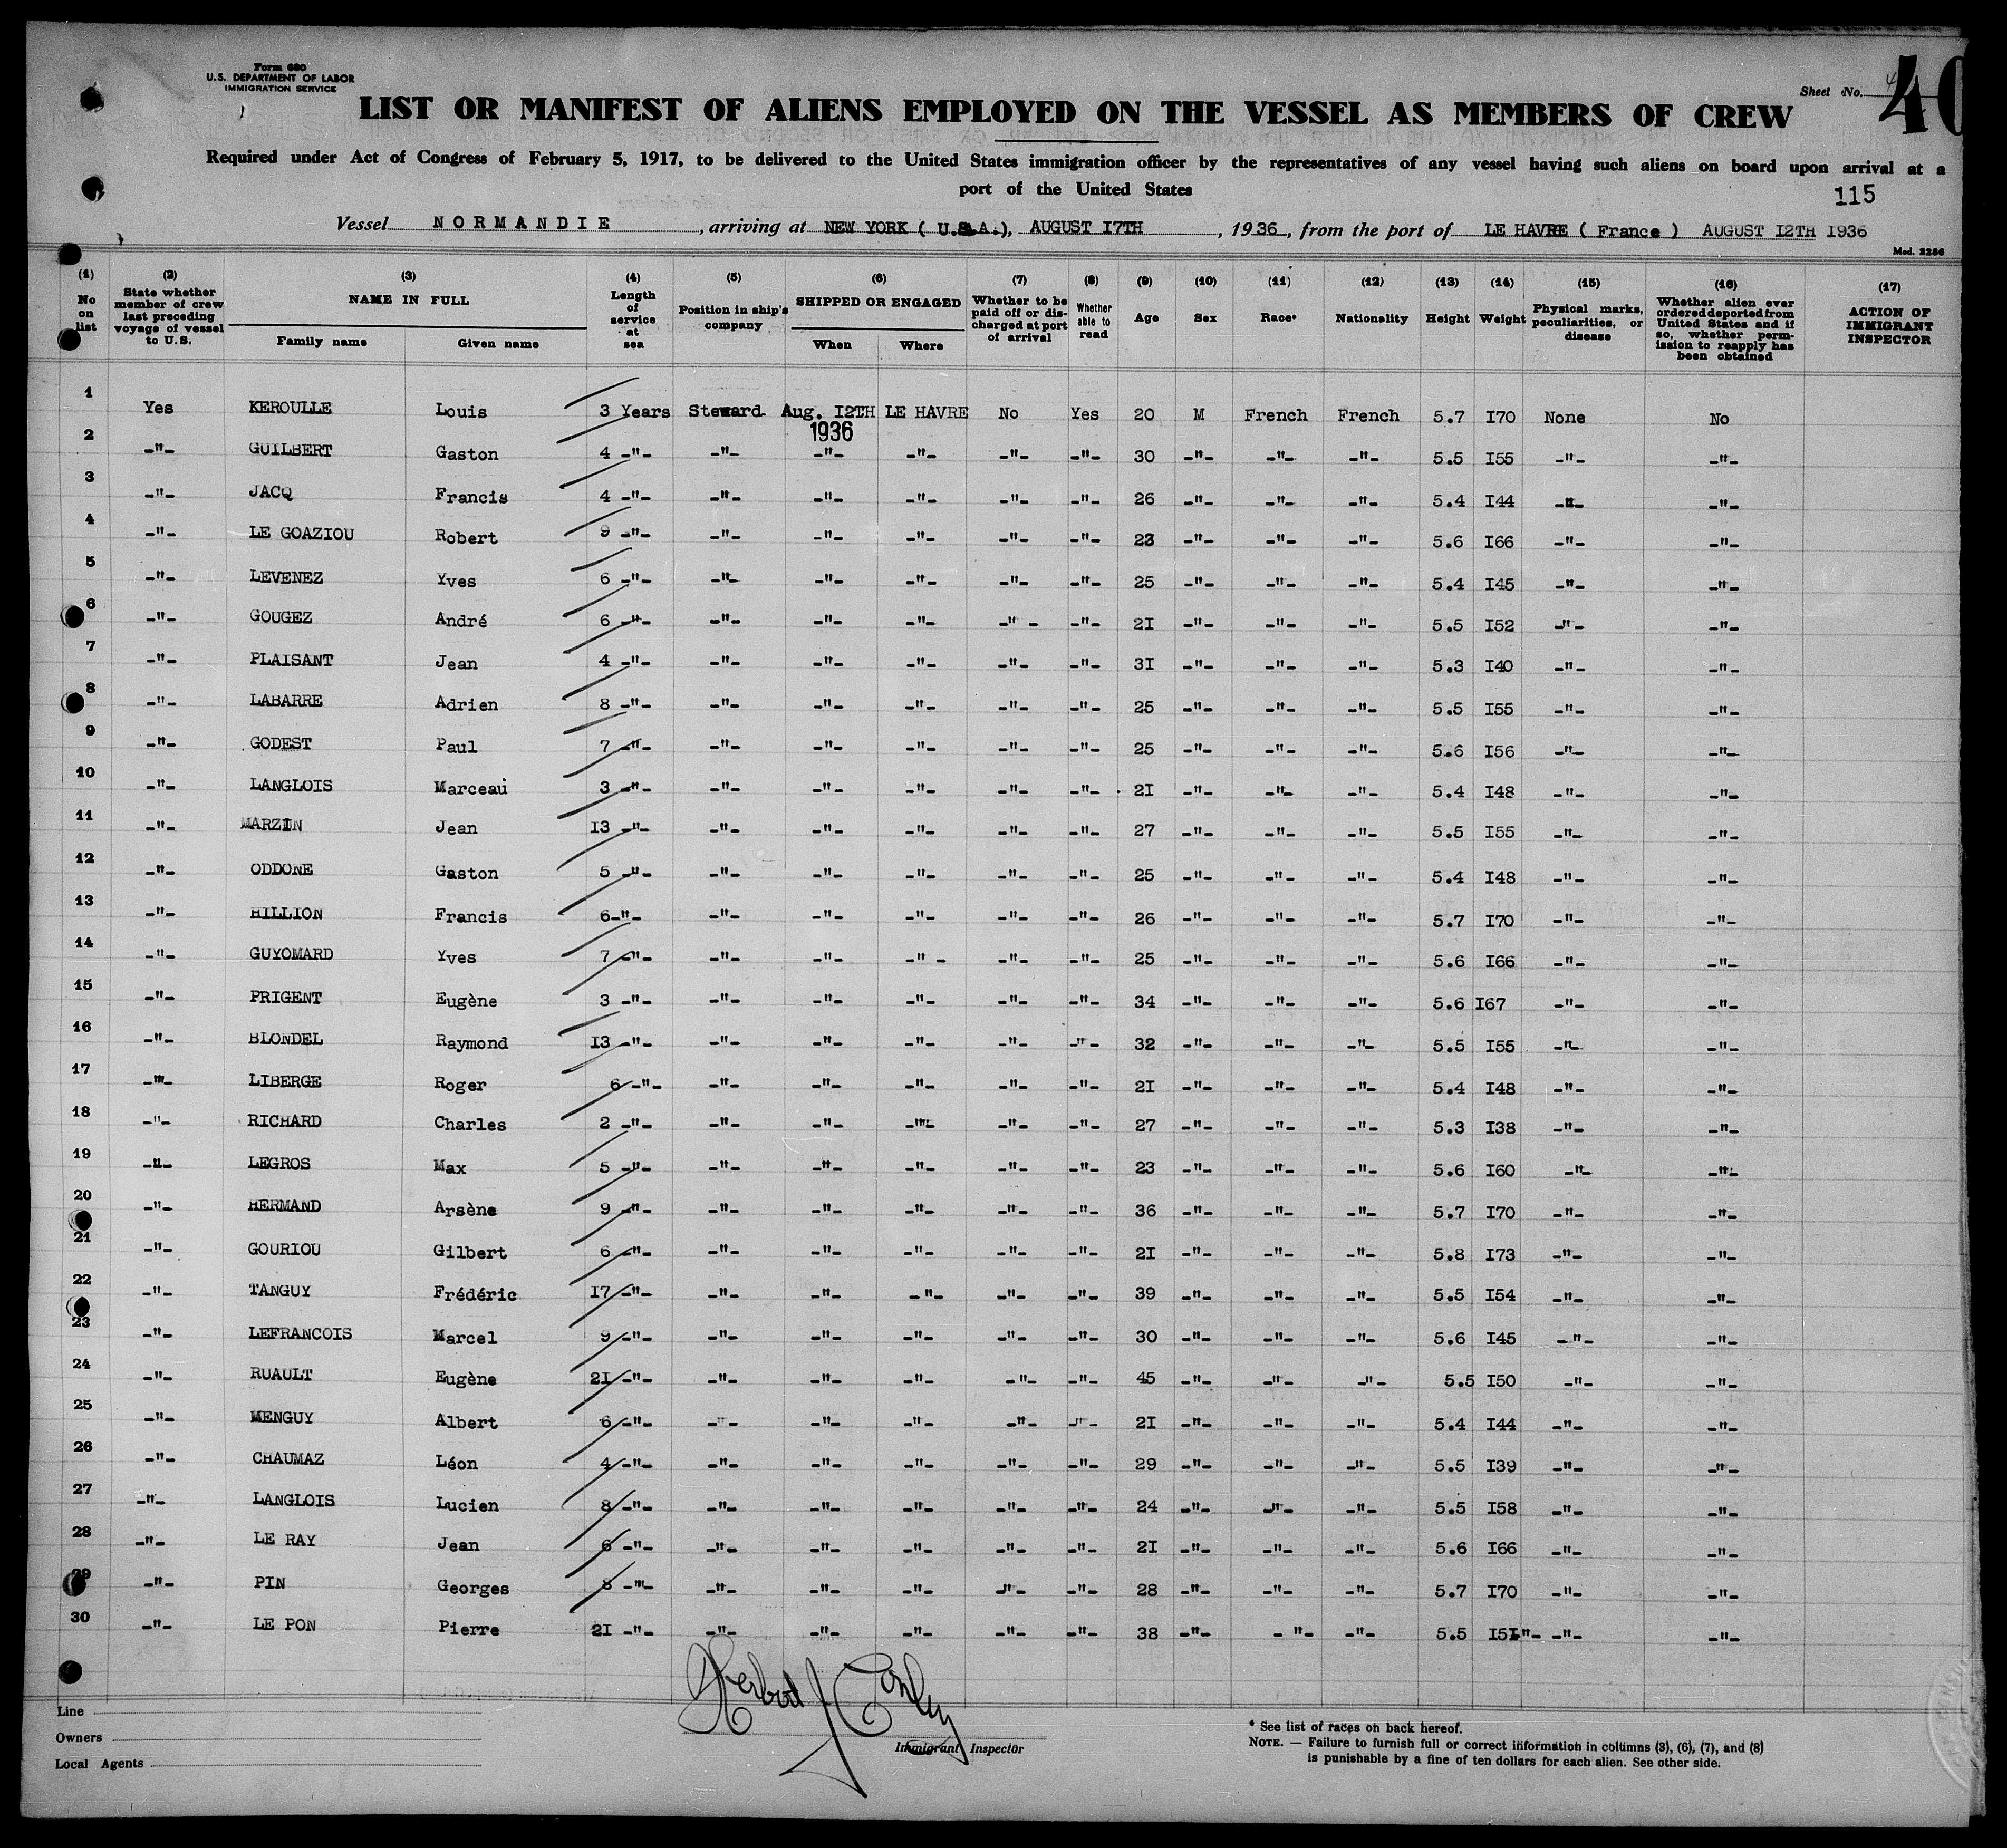 Form 680
U.S. DEPARTMENT OF LABOR
IMMIGRATION SERVICE
Sheet No. 4
40
LIST OR MANIFEST OF ALIENS EMPLOYED ON THE VESSEL AS MEMBERS OF CREW
Required under Act of Congress of February 5, 1917, to be delivered to the United States immigration officer by the representatives of any vessel having such aliens on board upon arrival at a
port of the United States
115
Vessel NORMANDIE, arriving at NEW YORK ( U.S.A.), AUGUST I7TH, 1936, from the port of LE HAVRE ( France ) AUGUST I2TH 1936
Mod. 2286
(1) No on list (2) State whether member of crew last preceding voyage of vessel to U.S. (3) NAME IN FULL Family name Given name (4) Length of service at sea (5) Position in ship's company (6) SHIPPED OR ENGAGED When Where (7) Whether to be paid off or discharged at port of arrival (8) Whether able to read (9) Age (10) Sex (11) Race* (12) Nationality (13) Height (14) Weight (15) Physical marks, peculiarities, or disease (16) Whether alien ever ordered deported from United States and if so, whether permission to reapply has been obtained (17) ACTION OF IMMIGRANT INSPECTOR
1 Yes KEROULLE Louis 3 Years Steward Aug. I2TH 1936 LE HAVRE No Yes 20 M French French 5.7 I70 None No
2 -"- GUILBERT Gaston 4 -"- -"- -"- -"- -"- -"- 30 -"- -"- -"- 5.5 I55 -"- -"-
3 -"- JACQ Francis 4 -"- -"- -"- -"- -"- -"- 26 -"- -"- -"- 5.4 I44 -"- -"-
4 -"- LE GOAZIOU Robert 9 -"- -"- -"- -"- -"- -"- 23 -"- -"- -"- 5.6 I66 -"- -"-
5 -"- LEVENEZ Yves 6 -"- -"- -"- -"- -"- -"- 25 -"- -"- -"- 5.4 I45 -"- -"-
6 -"- GOUGEZ André 6 -"- -"- -"- -"- -"- -"- 2I -"- -"- -"- 5.5 I52 -"- -"-
7 -"- PLAISANT Jean 4 -"- -"- -"- -"- -"- -"- 3I -"- -"- -"- 5.3 I40 -"- -"-
8 -"- LABARRE Adrien 8 -"- -"- -"- -"- -"- -"- 25 -"- -"- -"- 5.5 I55 -"- -"-
9 -"- GODEST Paul 7 -"- -"- -"- -"- -"- -"- 25 -"- -"- -"- 5.6 I56 -"- -"-
10 -"- LANGLOIS Marceau 3 -"- -"- -"- -"- -"- -"- 2I -"- -"- -"- 5.4 I48 -"- -"-
11 -"- MARZIN Jean I3 -"- -"- -"- -"- -"- -"- 27 -"- -"- -"- 5.5 I55 -"- -"-
12 -"- ODDONE Gaston 5 -"- -"- -"- -"- -"- -"- 25 -"- -"- -"- 5.4 I48 -"- -"-
13 -"- HILLION Francis 6-"- -"- -"- -"- -"- -"- 26 -"- -"- -"- 5.7 I70 -"- -"-
14 -"- GUYOMARD Yves 7 -"- -"- -"- -"- -"- -"- 25 -"- -"- -"- 5.6 I66 -"- -"-
15 -"- PRIGENT Eugène 3 -"- -"- -"- -"- -"- -"- 34 -"- -"- -"- 5.6 I67 -"- -"-
16 -"- BLONDEL Raymond I3 -"- -"- -"- -"- -"- -"- 32 -"- -"- -"- 5.5 I55 -"- -"-
17 -"- LIBERGE Roger 6 -"- -"- -"- -"- -"- -"- 2I -"- -"- -"- 5.4 I48 -"- -"-
18 -"- RICHARD Charles 2 -"- -"- -"- -"- -"- -"- 27 -"- -"- -"- 5.3 I38 -"- -"-
19 -"- LEGROS Max 5 -"- -"- -"- -"- -"- -"- 23 -"- -"- -"- 5.6 I60 -"- -"-
20 -"- HERMAND Arsène 9 -"- -"- -"- -"- -"- -"- 36 -"- -"- -"- 5.7 I70 -"- -"-
21 -"- GOURIOU Gilbert 6 -"- -"- -"- -"- -"- -"- 2I -"- -"- -"- 5.8 I73 -"- -"-
22 -"- TANGUY Frédéric I7 -"- -"- -"- -"- -"- -"- 39 -"- -"- -"- 5.5 I54 -"- -"-
23 -"- LEFRANCOIS Marcel 9 -"- -"- -"- -"- -"- -"- 30 -"- -"- -"- 5.6 I45 -"- -"-
24 -"- RUAULT Eugène 2I -"- -"- -"- -"- -"- -"- 45 -"- -"- -"- 5.5 I50 -"- -"-
25 -"- MENGUY Albert 6 -"- -"- -"- -"- -"- -"- 2I -"- -"- -"- 5.4 I44 -"- -"-
26 -"- CHAUMAZ Léon 4 -"- -"- -"- -"- -"- -"- 29 -"- -"- -"- 5.5 I39 -"- -"-
27 -"- LANGLOIS Lucien 8 -"- -"- -"- -"- -"- -"- 24 -"- -"- -"- 5.5 I58 -"- -"-
28 -"- LE RAY Jean 6 -"- -"- -"- -"- -"- -"- 2I -"- -"- -"- 5.6 I66 -"- -"-
29 -"- PIN Georges 8 -"- -"- -"- -"- -"- -"- 28 -"- -"- -"- 5.7 I70 -"- -"-
30 -"- LE PON Pierre 2I -"- -"- -"- -"- -"- -"- 38 -"- -"- -"- 5.5 I5I"- -"- -"-
Herbert J Conley
Immigrant Inspector
Line
Owners
Local Agents
* See list of races on back hereof.
NOTE. — Failure to furnish full or correct information in columns (3), (6), (7), and (8)
is punishable by a fine of ten dollars for each alien. See other side.